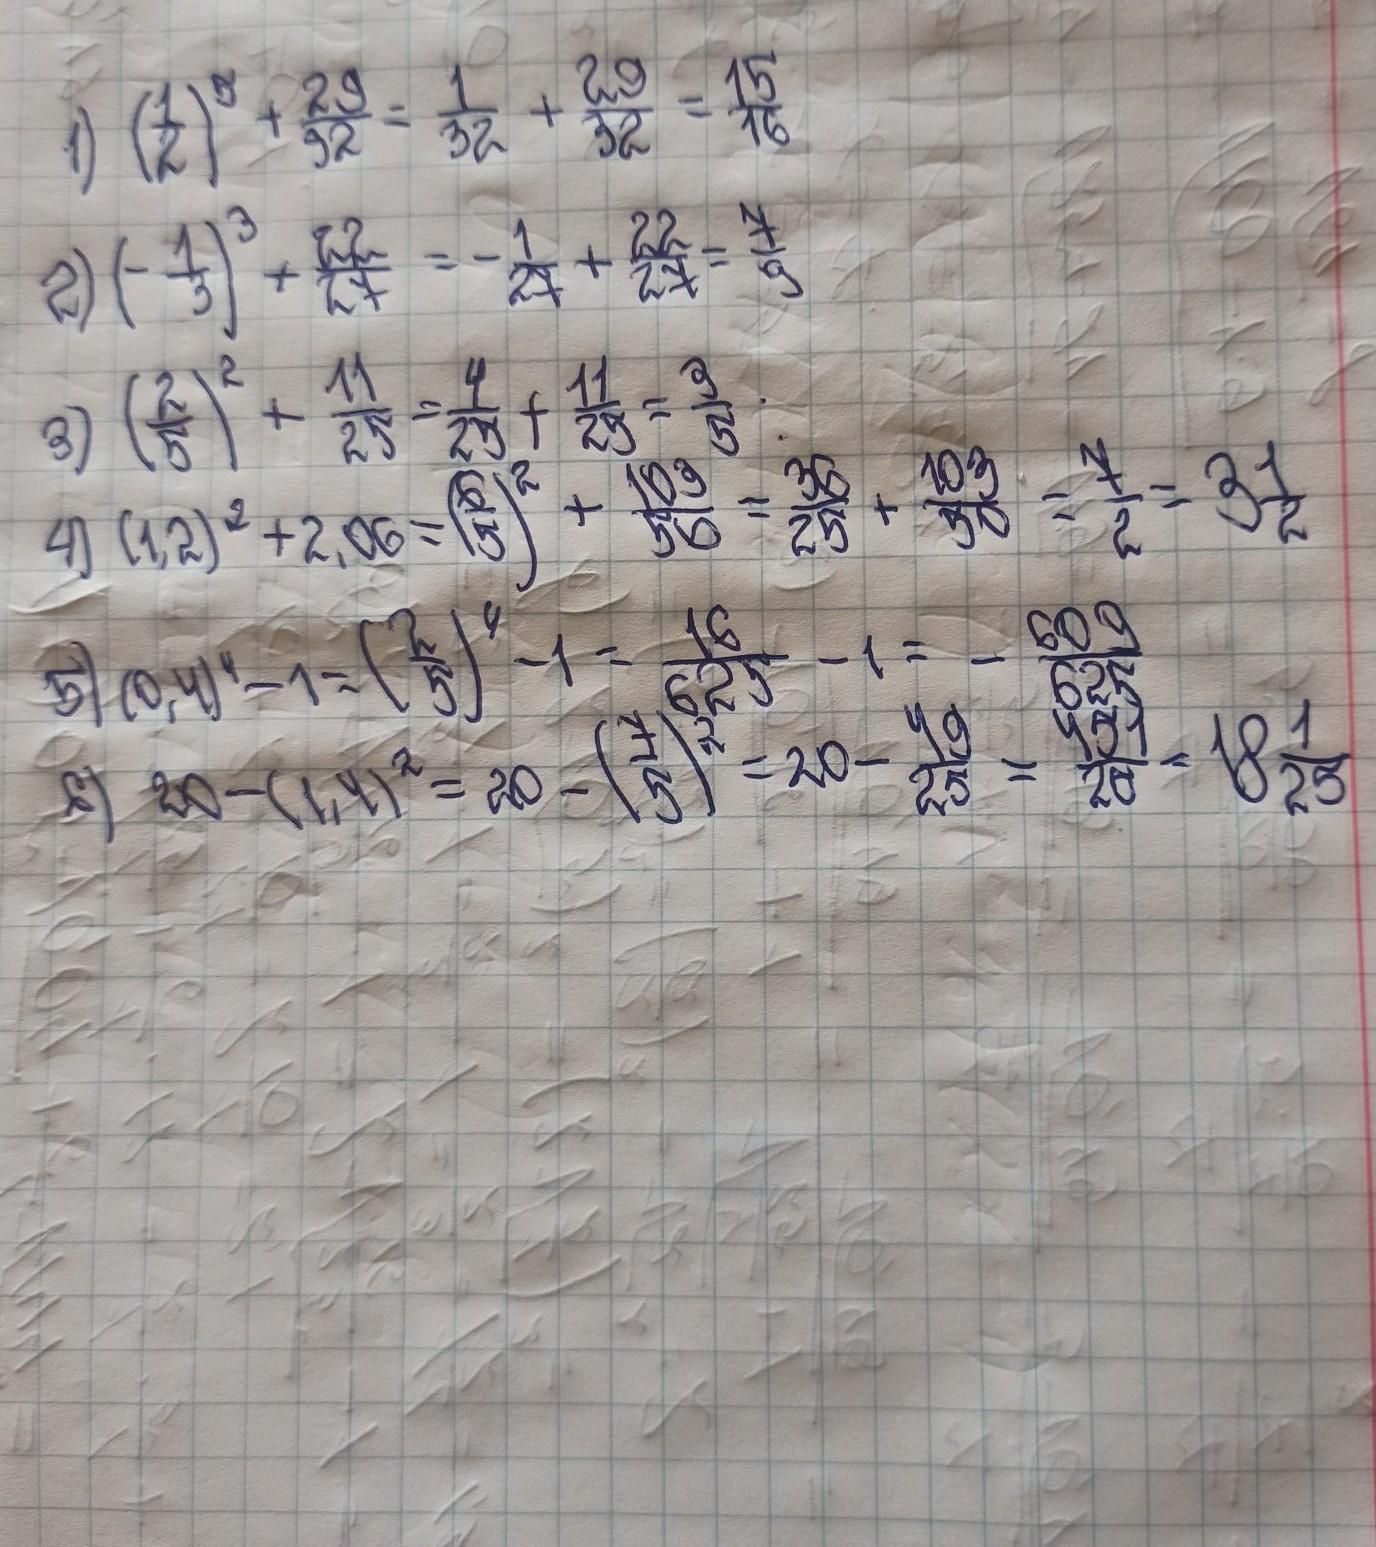 1) (1/2)^5 + 29/32 = 1/32 + 29/32 = 15/16
2) (-1/3)^3 + 22/27 = -1/27 + 22/27 = 7/9
3) (2/5)^2 + 11/25 = 4/25 + 11/25 = 3/5.
4) (1,2)^2 + 2,06 = (6/5)^2 + 103/50 = 36/25 + 103/50 = 7/2 = 3 1/2
5) (0,4)^4 - 1 = (2/5)^4 - 1 = 16/625 - 1 = - 609/625
6) 20 - (1,4)^2 = 20 - (7/5)^2 = 20 - 49/25 = 451/25 = 18 1/25